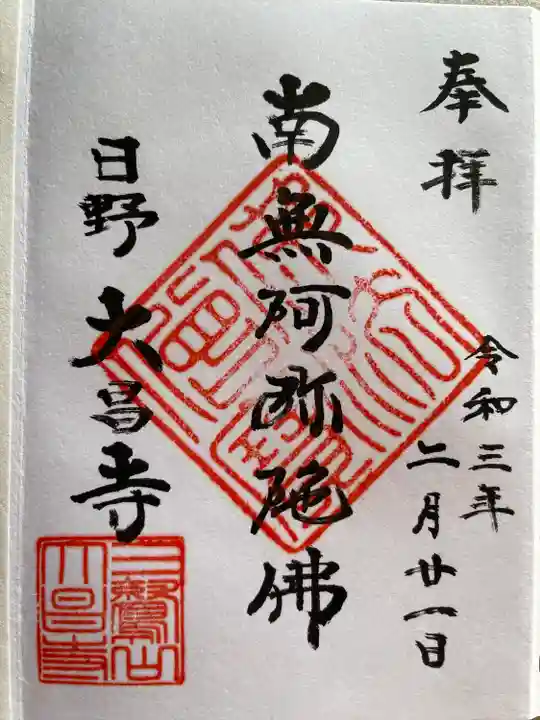 奉拝
令和三年
二月廿一日
南無阿弥陀佛
日野 大昌寺
大昌寺